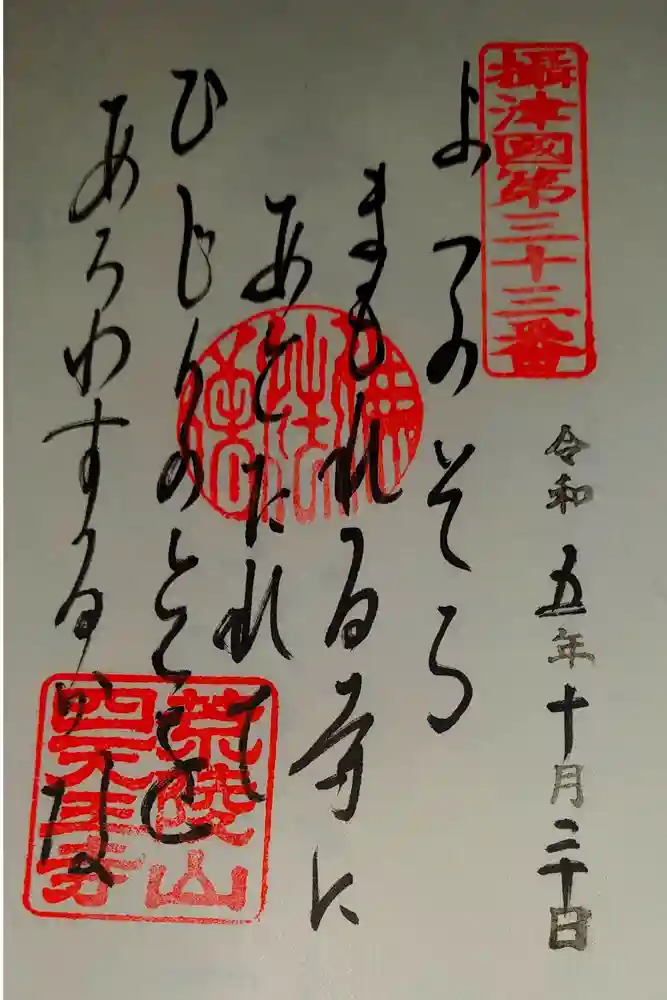 攝津國第三十三番
令和五年十月二十日
よつのそら
まもれる寺に
あとたれて
ひじりのみこと
あらわするかな
荒陵山
四天王寺